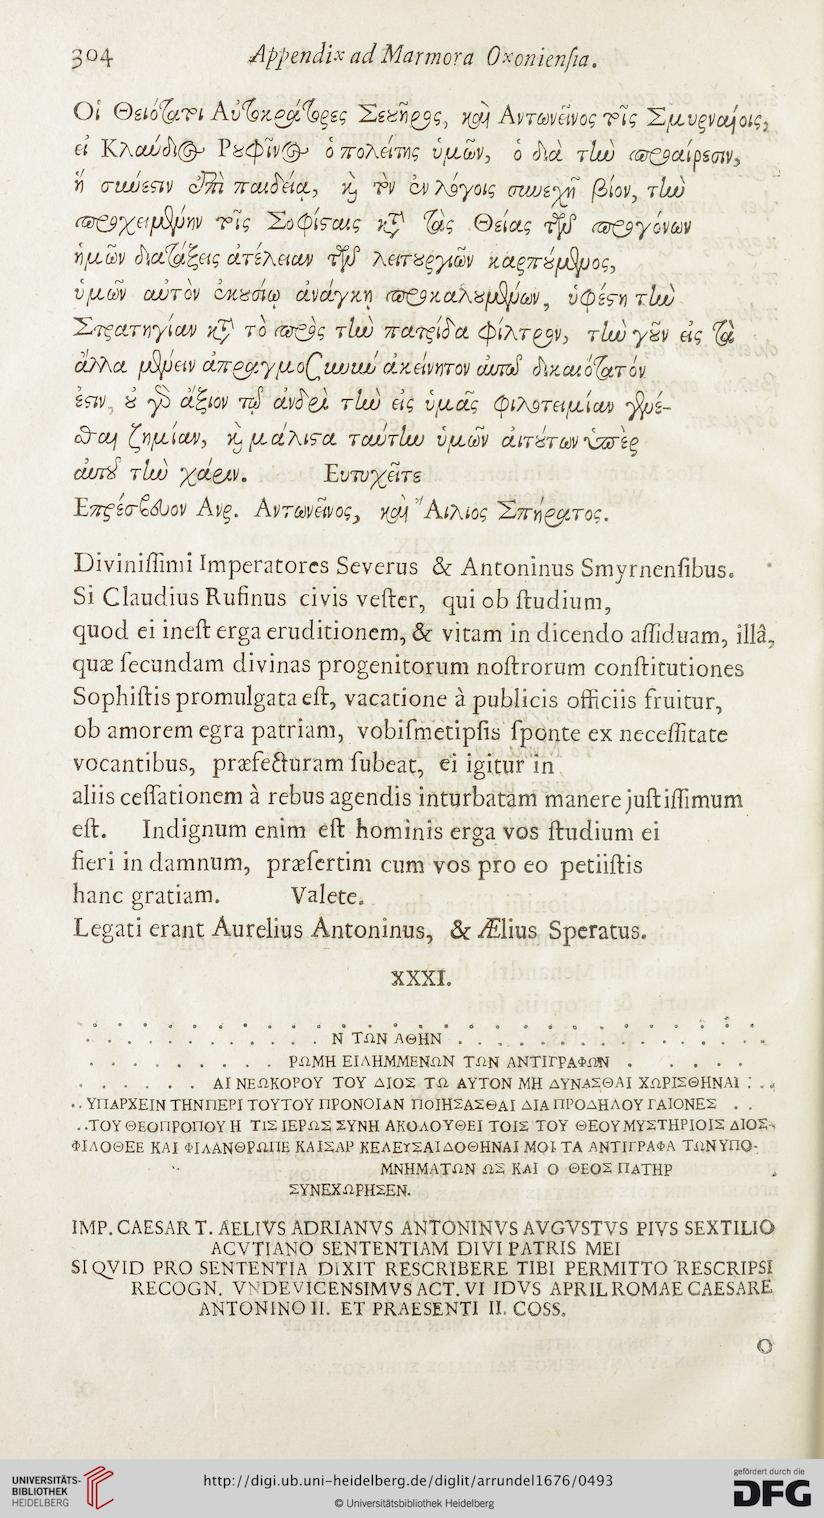 304 Appendix ad Marmora Oxoniensia.
Οἱ Θειότατοι Αὐτοκράτορες Σευῆρος, καὶ Αντωνεῖνος τοῖς Σμυρναίοις,
εἰ Κλαύδιος Ρουφῖνος ὁ πολείτης ὑμῶν, ὁ διὰ τὴν προαίρεσιν,
ἣ σύνεστιν ἐπὶ παιδείᾳ, καὶ τὸν ἐν λόγοις συνεχῆ βίον, τὴν
προχειμένην τοῖς Σοφίσταις κατὰ τὰς Θείας τῶν προγόνων
ἡμῶν διατάξεις ἀτέλειαν τῶν λειτουργιῶν καρπούμενος,
ὑμῶν αὐτὸν ἑκουσίῳ ἀνάγκῃ προκαλουμένων, ὑφέστη τὴν
Στρατηγίαν κατὰ τὸ πρὸς τὴν πατρίδα φίλτρον, τὴν γοῦν εἰς τὰ
ἄλλα μένειν ἀπραγμοσύνην ἀκείνητον αὐτῷ δικαιότατόν
ἐστιν, οὐ γὰρ ἄξιον τῷ ἀνδρὶ τὴν εἰς ὑμᾶς φιλοτειμίαν γενέ-
σθαι ζημίαν, καὶ μάλιστα ταύτην ὑμῶν αἰτούτων ὑπὲρ
αὐτοῦ τὴν χάριν. Ευτυχεῖτε
Επρέσβευον Αυρ. Αντωνεῖνος, καὶ Ἄιλιος Σπήρατος.
Divinissimi Imperatores Severus & Antoninus Smyrnensibus.
Si Claudius Rufinus civis vester, qui ob studium,
quod ei inest erga eruditionem, & vitam in dicendo assiduam, illâ,
quæ secundam divinas progenitorum nostrorum constitutiones
Sophistis promulgata est, vacatione à publicis officiis fruitur,
ob amorem egra patriam, vobismetipsis sponte ex necessitate
vocantibus, præfecturam subeat, ei igitur in
aliis cessationem à rebus agendis inturbatam manere justissimum
est. Indignum enim est hominis erga vos studium ei
fieri in damnum, præsertim cum vos pro eo petiistis
hanc gratiam. Valete.
Legati erant Aurelius Antoninus, & Ælius Speratus.
XXXI.
. . . . . . . . . . Ν ΤΩΝ ΑΘΗΝ . . . . . . . . . .
. . . . . . . . . ΡΩΜΗ ΕΙΛΗΜΜΕΝΩΝ ΤΩΝ ΑΝΤΙΓΡΑΦΩΝ . . . . .
. . . . . . ΑΙ ΝΕΩΚΟΡΟΥ ΤΟΥ ΔΙΟΣ ΤΩ ΑΥΤΟΝ ΜΗ ΔΥΝΑΣΘΑΙ ΧΩΡΙΣΘΗΝΑΙ . . .
. . ΥΠΑΡΧΕΙΝ ΤΗΝ ΠΕΡΙ ΤΟΥΤΟΥ ΠΡΟΝΟΙΑΝ ΠΟΙΗΣΑΣΘΑΙ ΔΙΑ ΠΡΟΔΗΛΟΥ ΓΑΙΟΝΕΣ . .
. .ΤΟΥ ΘΕΟΠΡΟΠΟΥ Η ΤΙΣ ΙΕΡΩΣ ΣΥΝΗ ΑΚΟΛΟΥΘΕΙ ΤΟΙΣ ΤΟΥ ΘΕΟΥ ΜΥΣΤΗΡΙΟΙΣ ΔΙΟΣ-
ΦΙΛΟΘΕΕ ΚΑΙ ΦΙΛΑΝΘΡΩΠΕ ΚΑΙΣΑΡ ΚΕΛΕΥΣΑΙ ΔΟΘΗΝΑΙ ΜΟΙ ΤΑ ΑΝΤΙΓΡΑΦΑ ΤΩΝ ΥΠΟ-
ΜΝΗΜΑΤΩΝ ΩΣ ΚΑΙ Ο ΘΕΟΣ ΠΑΤΗΡ
ΣΥΝΕΧΩΡΗΣΕΝ.
IMP. CAESAR T. AELIVS ADRIANVS ANTONINVS AVGVSTVS PIVS SEXTILIO
ACVTIANO SENTENTIAM DIVI PATRIS MEI
SI QVID PRO SENTENTIA DIXIT RESCRIBERE TIBI PERMITTO RESCRIPSI
RECOGN. VNDEVICENSIMVS ACT. VI IDVS APRIL ROMAE CAESARE
ANTONINO II. ET PRAESENTI II. COSS.
O
UNIVERSITÄTS-
BIBLIOTHEK
HEIDELBERG
http://digi.ub.uni-heidelberg.de/diglit/arrundel1676/0493
© Universitätsbibliothek Heidelberg
gefördert durch die
DFG